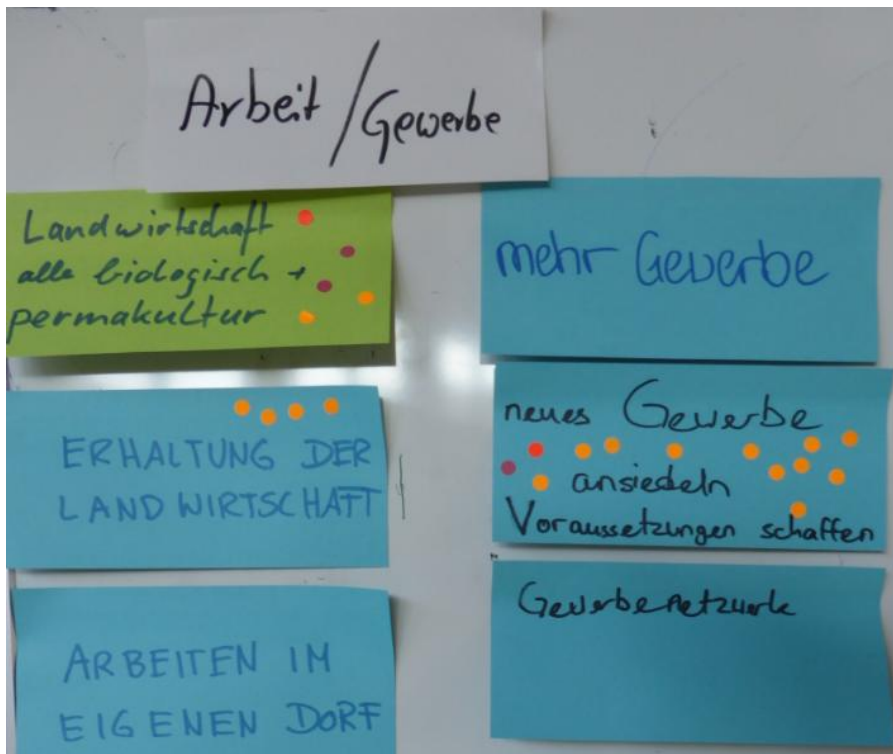 Arbeit / Gewerbe
Landwirtschaft
alle biologisch +
permakultur
ERHALTUNG DER
LANDWIRTSCHAFT
ARBEITEN IM
EIGENEN DORF
mehr Gewerbe
neues Gewerbe
ansiedeln
Voraussetzungen schaffen
Gewerbenetzwerk